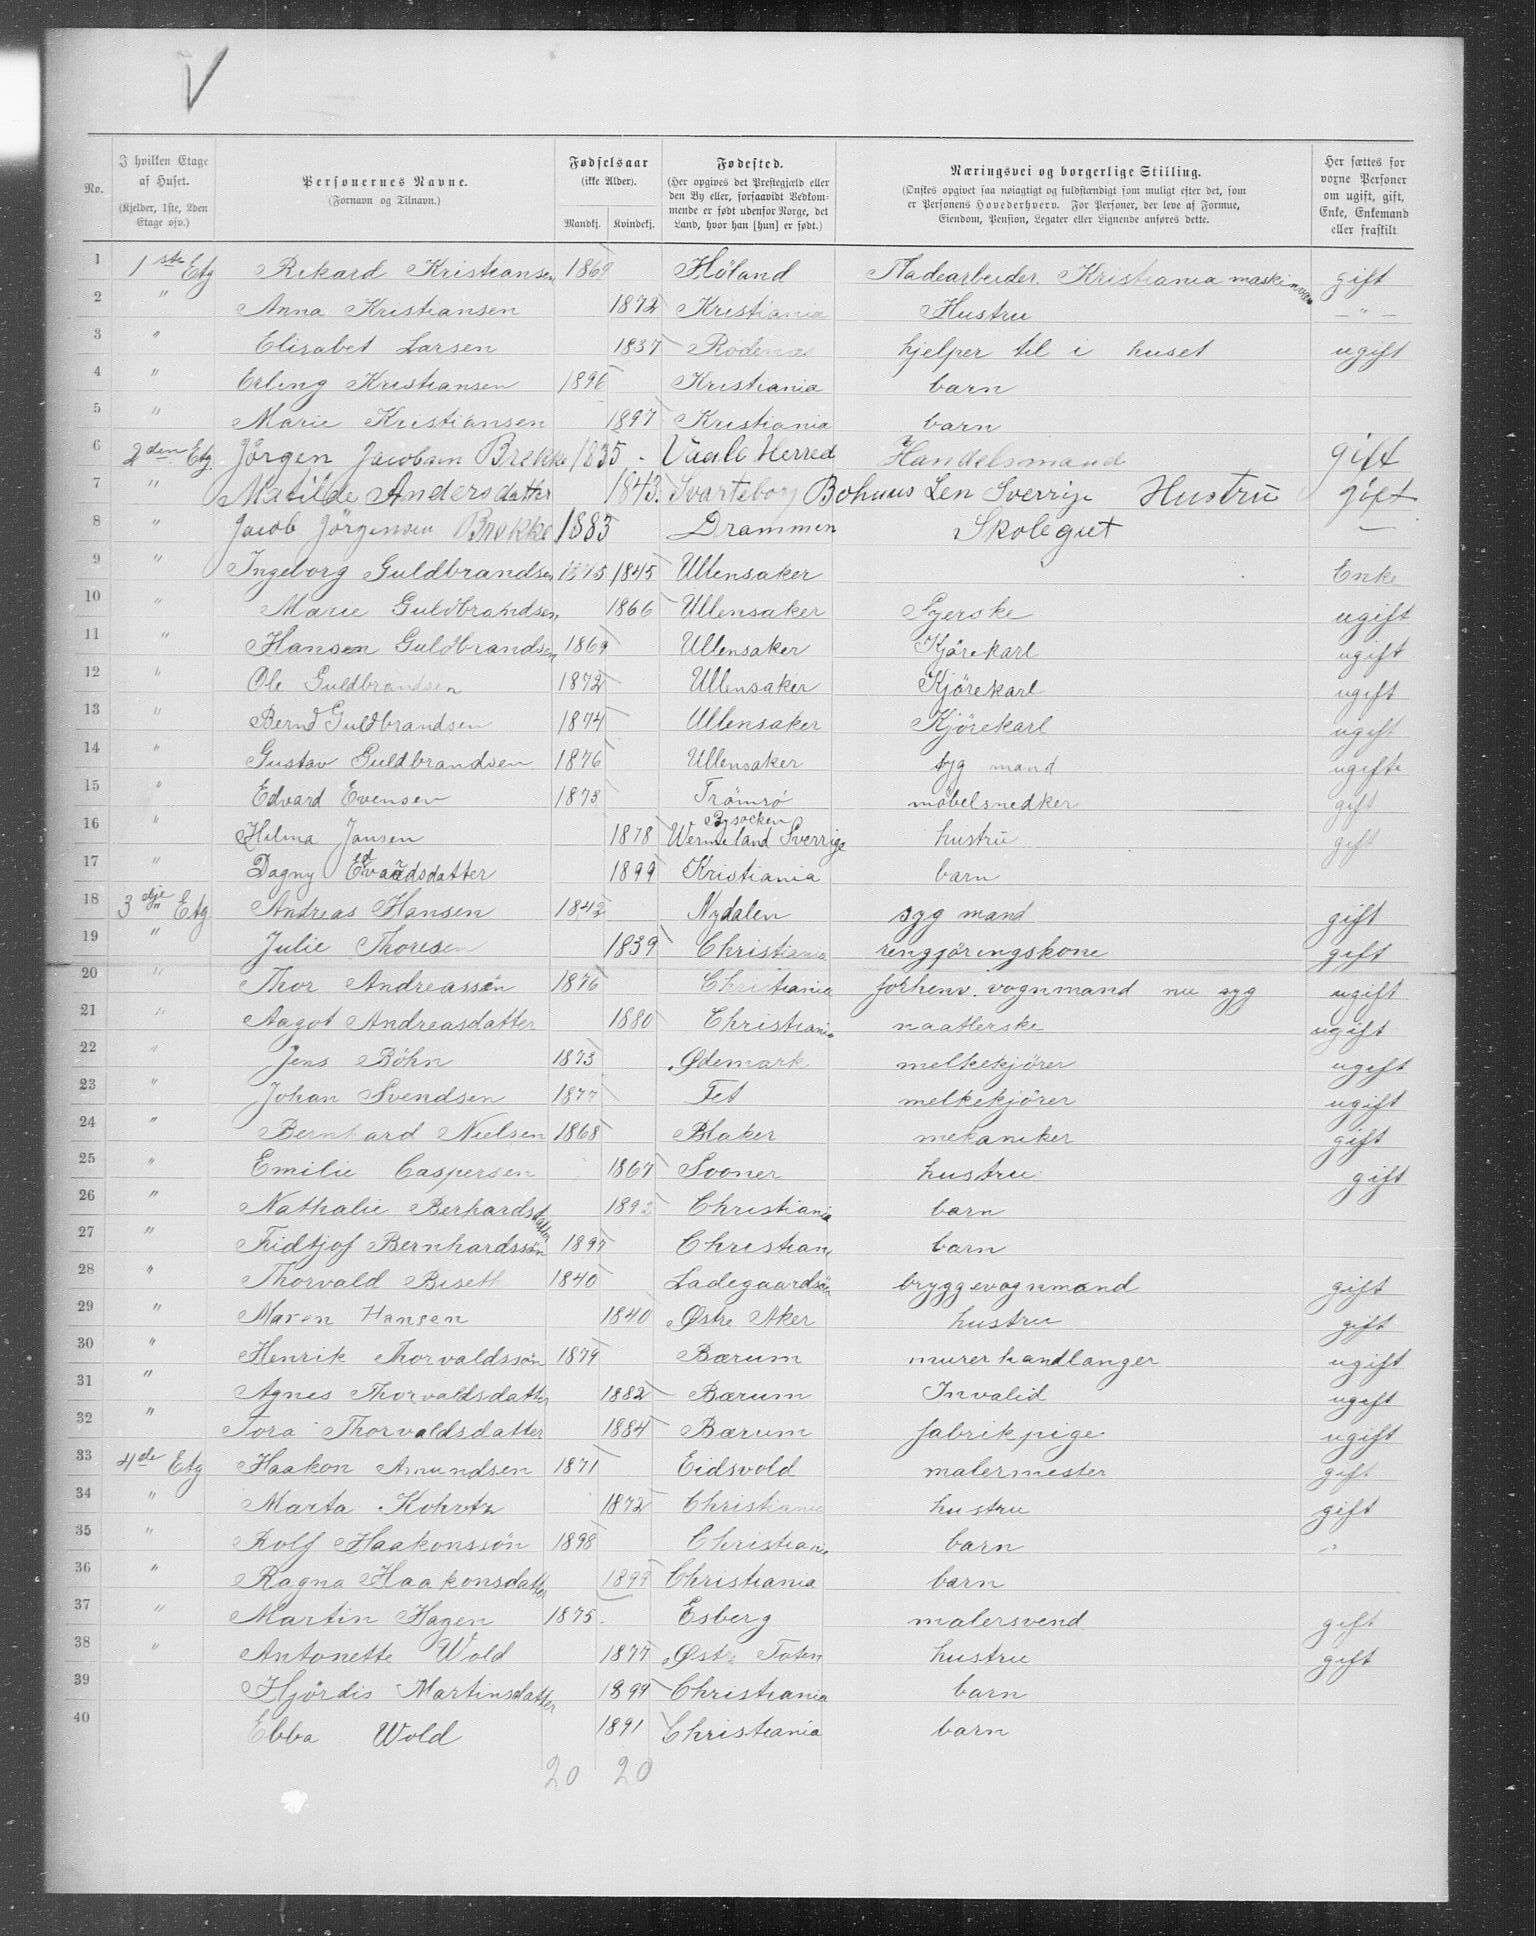 V
No. | I hvilken Etage af Huset. (Kjelder, 1ste, 2den Etage osv.) | Personernes Navne. (Fornavn og Tilnavn.) | Fødselsaar (ikke Alder). Mandkj. Kvindekj. | Fødested. (Her opgives det Prestegjæld eller den By eller, forsaavidt Vedkommende er født udenfor Norge, det Land, hvor han [hun] er født.) | Næringsvei og borgerlige Stilling. (Ønskes opgivet saa nøiagtigt og fuldstændigt som muligt efter det, som er Personens Hovederhverv. For Personer, der leve af Formue, Eiendom, Pension, Legater eller Lignende anføres dette. | Her sættes for voxne Personer om ugift, gift, Enke, Enkemand eller fraskilt
1 1ste Etg Rikard Kristiansen 1869 Høland Pladearbeider. Kristiania gift
2 " Anna Kristiansen 1872 Kristiania Hustru - " -
3 " Elisabet Larsen 1837 Rødenæs hjelper til i huset ugift
4 " Erling Kristiansen 1896 Kristiania barn
5 " Marie Kristiansen 1897 Kristiania barn
6 2den Etg. Jörgen Jacobsen Brekke 1835 Vaale Herred Handelsmand gift
7 " Matilde Andersdatter 1843. Svarteborg Bohuus Len Sverrige Hustru gift
8 " Jacob Jörgensen Brekke 1883 Drammen Skolegut —
9 " Ingeborg Guldbrandsen 1845 1845 Ullensaker Enke
10 " Marie Guldbrandsen 1866 Ullensaker Syerske ugift
11 " Hansen Guldbrandsen 1869 Ullensaker Kjörekarl ugift
12 " Ole Guldbrandsen 1872 Ullensaker Kjörekarl ugift
13 " Bernd Guldbrandsen 1874 Ullensaker Kjörekarl ugift
14 " Gustav Guldbrandsen 1876 Ullensaker syg mand ugifte
15 " Edvard Evensen 1873 Trömsö möbelsnedker gift
16 " Hilma Jansen 1878 Wermeland Sverrige hustru gift
17 " Dagny Edvardsdatter 1899 Kristiania barn
18 3dje Etg. Andreas Hansen 1842 Nydalen syg mand gift
19 " Julie Thoresen 1839 Christiania rengjöringskone gift
20 " Thor Andreassön 1876 Christiania forhenv. vognmand nu syg ugift
21 " Aagot Andreasdatter 1880 Christiania naatlerske ugift
22 " Jens Böhn 1873 Ødemark melkekjörer ugift
23 " Johan Svendsen 1877 Fet melkekjörer ugift
24 " Bernhard Nielsen 1868 Blaker mekaniker gift
25 " Emilie Caspersen 1867 Sooner hustru gift
26 " Nathalie Berhardsdatter 1892 Christiania barn
27 " Fridtjof Bernhardssön 1897 Christian barn
28 " Thorvald Biseth 1840 Ladegaardsöen bryggevognmand gift
29 " Maren Hansen 1840 Østre Aker hustru gift
30 " Henrik Thorvaldssön 1879 Bærum murerhandlanger ugift
31 " Agnes Thorvaldsdatter 1882 Bærum Invalid ugift
32 " Tora Thorvaldsdatter 1884 Bærum fabrikpige ugift
33 4de Etg Haakon Amundsen 1871 Eidsvold malermester gift
34 " Marta Kohrtz 1872 Christiania hustru gift
35 " Rolf Haakonssön 1898 Christiania barn "
36 " Ragna Haakonsdatter 1899 Christiania barn
37 " Martin Hagen 1875. Esberg malersvend gift
38 " Antonette Wold 1877 Østre Toten hustru gift
39 Hjördis Martinsdatter 1899 Christiania barn
40 Ebba Wold 1891 Christiania barn
20 20